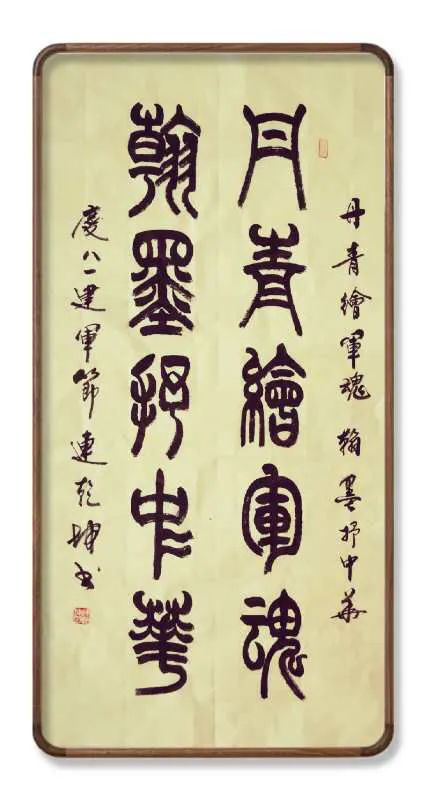 丹青繪軍魂 翰墨抒中華
丹青繪軍魂
翰墨抒中華
慶八一建軍節 連乾坤书